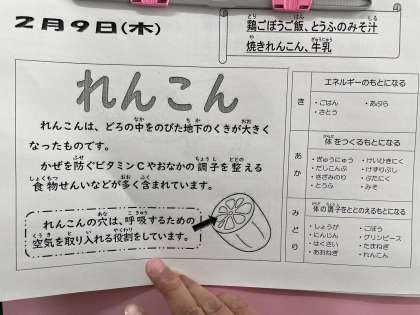 2月9日(木)
鶏ごぼうご飯、とうふのみそ汁
焼きれんこん、牛乳
れんこん
れんこんは、どろの中をのびた地下のくきが大きく
なったものです。
かぜを防ぐビタミンCやおなかの調子を整える
食物せんいなどが多く含まれています。
れんこんの穴は、呼吸するための
空気を取り入れる役割をしています。
き
エネルギーのもとになる
・ごはん ・あぶら
・さとう
あか
体をつくるもとになる
・ぎゅうにゅう ・けいひきにく
・だしこんぶ ・けずりぶし
・きざみのり ・ぶたにく
・とうふ ・みそ
みどり
体の調子をととのえるもとになる
・しょうが ・ごぼう
・にんじん ・グリンピース
・はくさい ・たまねぎ
・あおねぎ ・れんこん